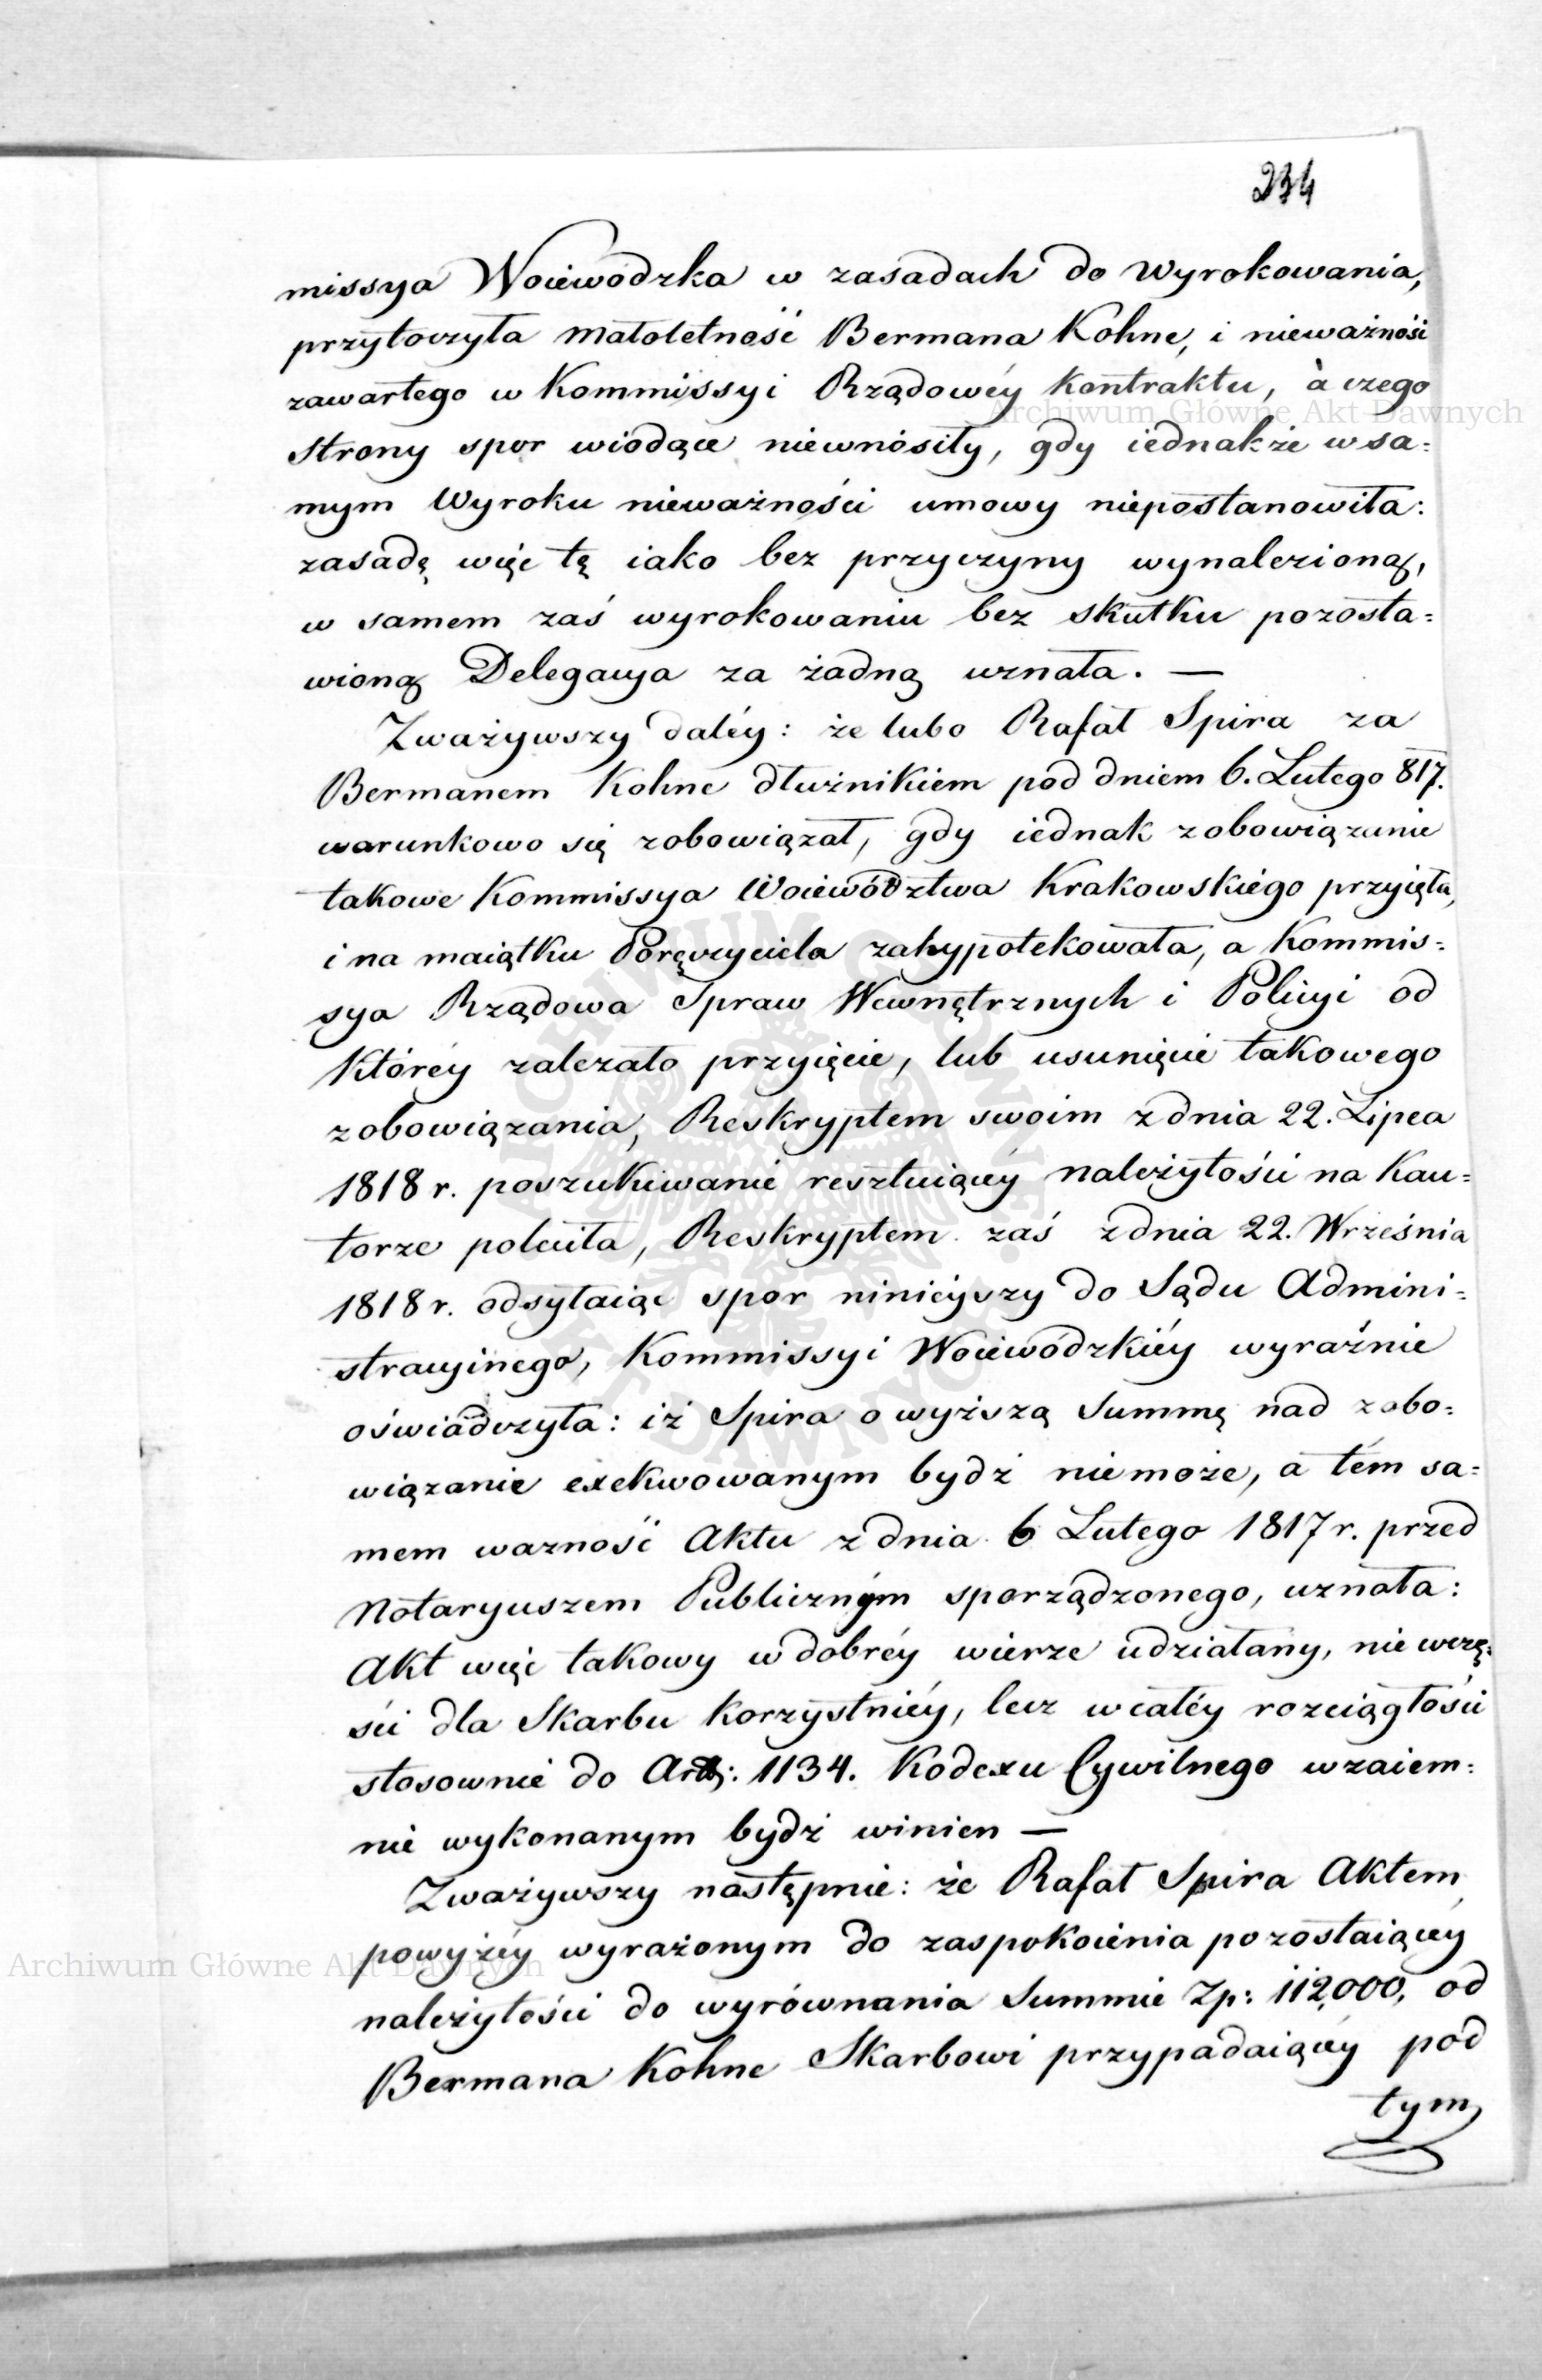 234
missya Woiewodzka w zasadach do wyrokowania,
przytoczyła małoletność Bermana Kohne, i nieważności
zawartego w Kommissyi Rządowéy kontraktu, à czego
strony spor wiodące niewnosiły, gdy iednakże w sa=
mym Wyroku nieważności umowy niepostanowiła:
zasadę więc tę iako bez przyczyny wynalezioną,
w samem zaś wyrokowaniu bez skutku pozosta=
wioną Delegacya za żadną uznała. —
Zważywszy daléy: że lubo Rafał Spira za
Bermanem Kohne dłużnikiem pod dniem 6. Lutego 817.
warunkowo się zobowiązał, gdy iednak zobowiązanie
takowe Kommissya Woiewództwa Krakowskiego przyięła,
i na maiątku Poręczyciela zahypotekowała, a Kommis=
sya Rządowa Spraw Wewnętrznych i Policyi od
któréy zalezało przyięcie, lub usunięcie takowego
zobowiązania, Reskryptem swoim z dnia 22. Lipca
1818 r. poszukiwanie resztuiącéy należytości na Kau=
torze poleciła, Reskryptem zaś z dnia 22. Września
1818 r. odsyłaiąc spor ninieyszy do Sądu Admini=
stracyinego, Kommissyi Woiewódzkiéy wyraźnie
oświadczyła: iż Spira o wyższą Summę nad zobo=
wiązanie exekwowanym bydź niemoże, a tém sa=
mem wazność Aktu z dnia 6 Lutego 1817 r. przed
Notaryuszem Publicznym sporządzonego, uznała:
Akt więc takowy w dobréy wierze udziałany, nie wczę=
ści dla Skarbu korzystniéy, lecz w całéy rozciągłości
stosownie do Art: 1134. Kodexu Cywilnego wzaiem=
nie wykonanym bydź winien —
Zważywszy następnie: że Rafał Spira Aktem
powyżéy wyrażonym do zaspokoienia pozostaiącéy
należytości do wyrównania Summie Zp: 112,000, od
Bermana Kohne Skarbowi przypadaiącéy pod
tym
Archiwum Główne Akt Dawnych
Archiwum Główne Akt Dawnych